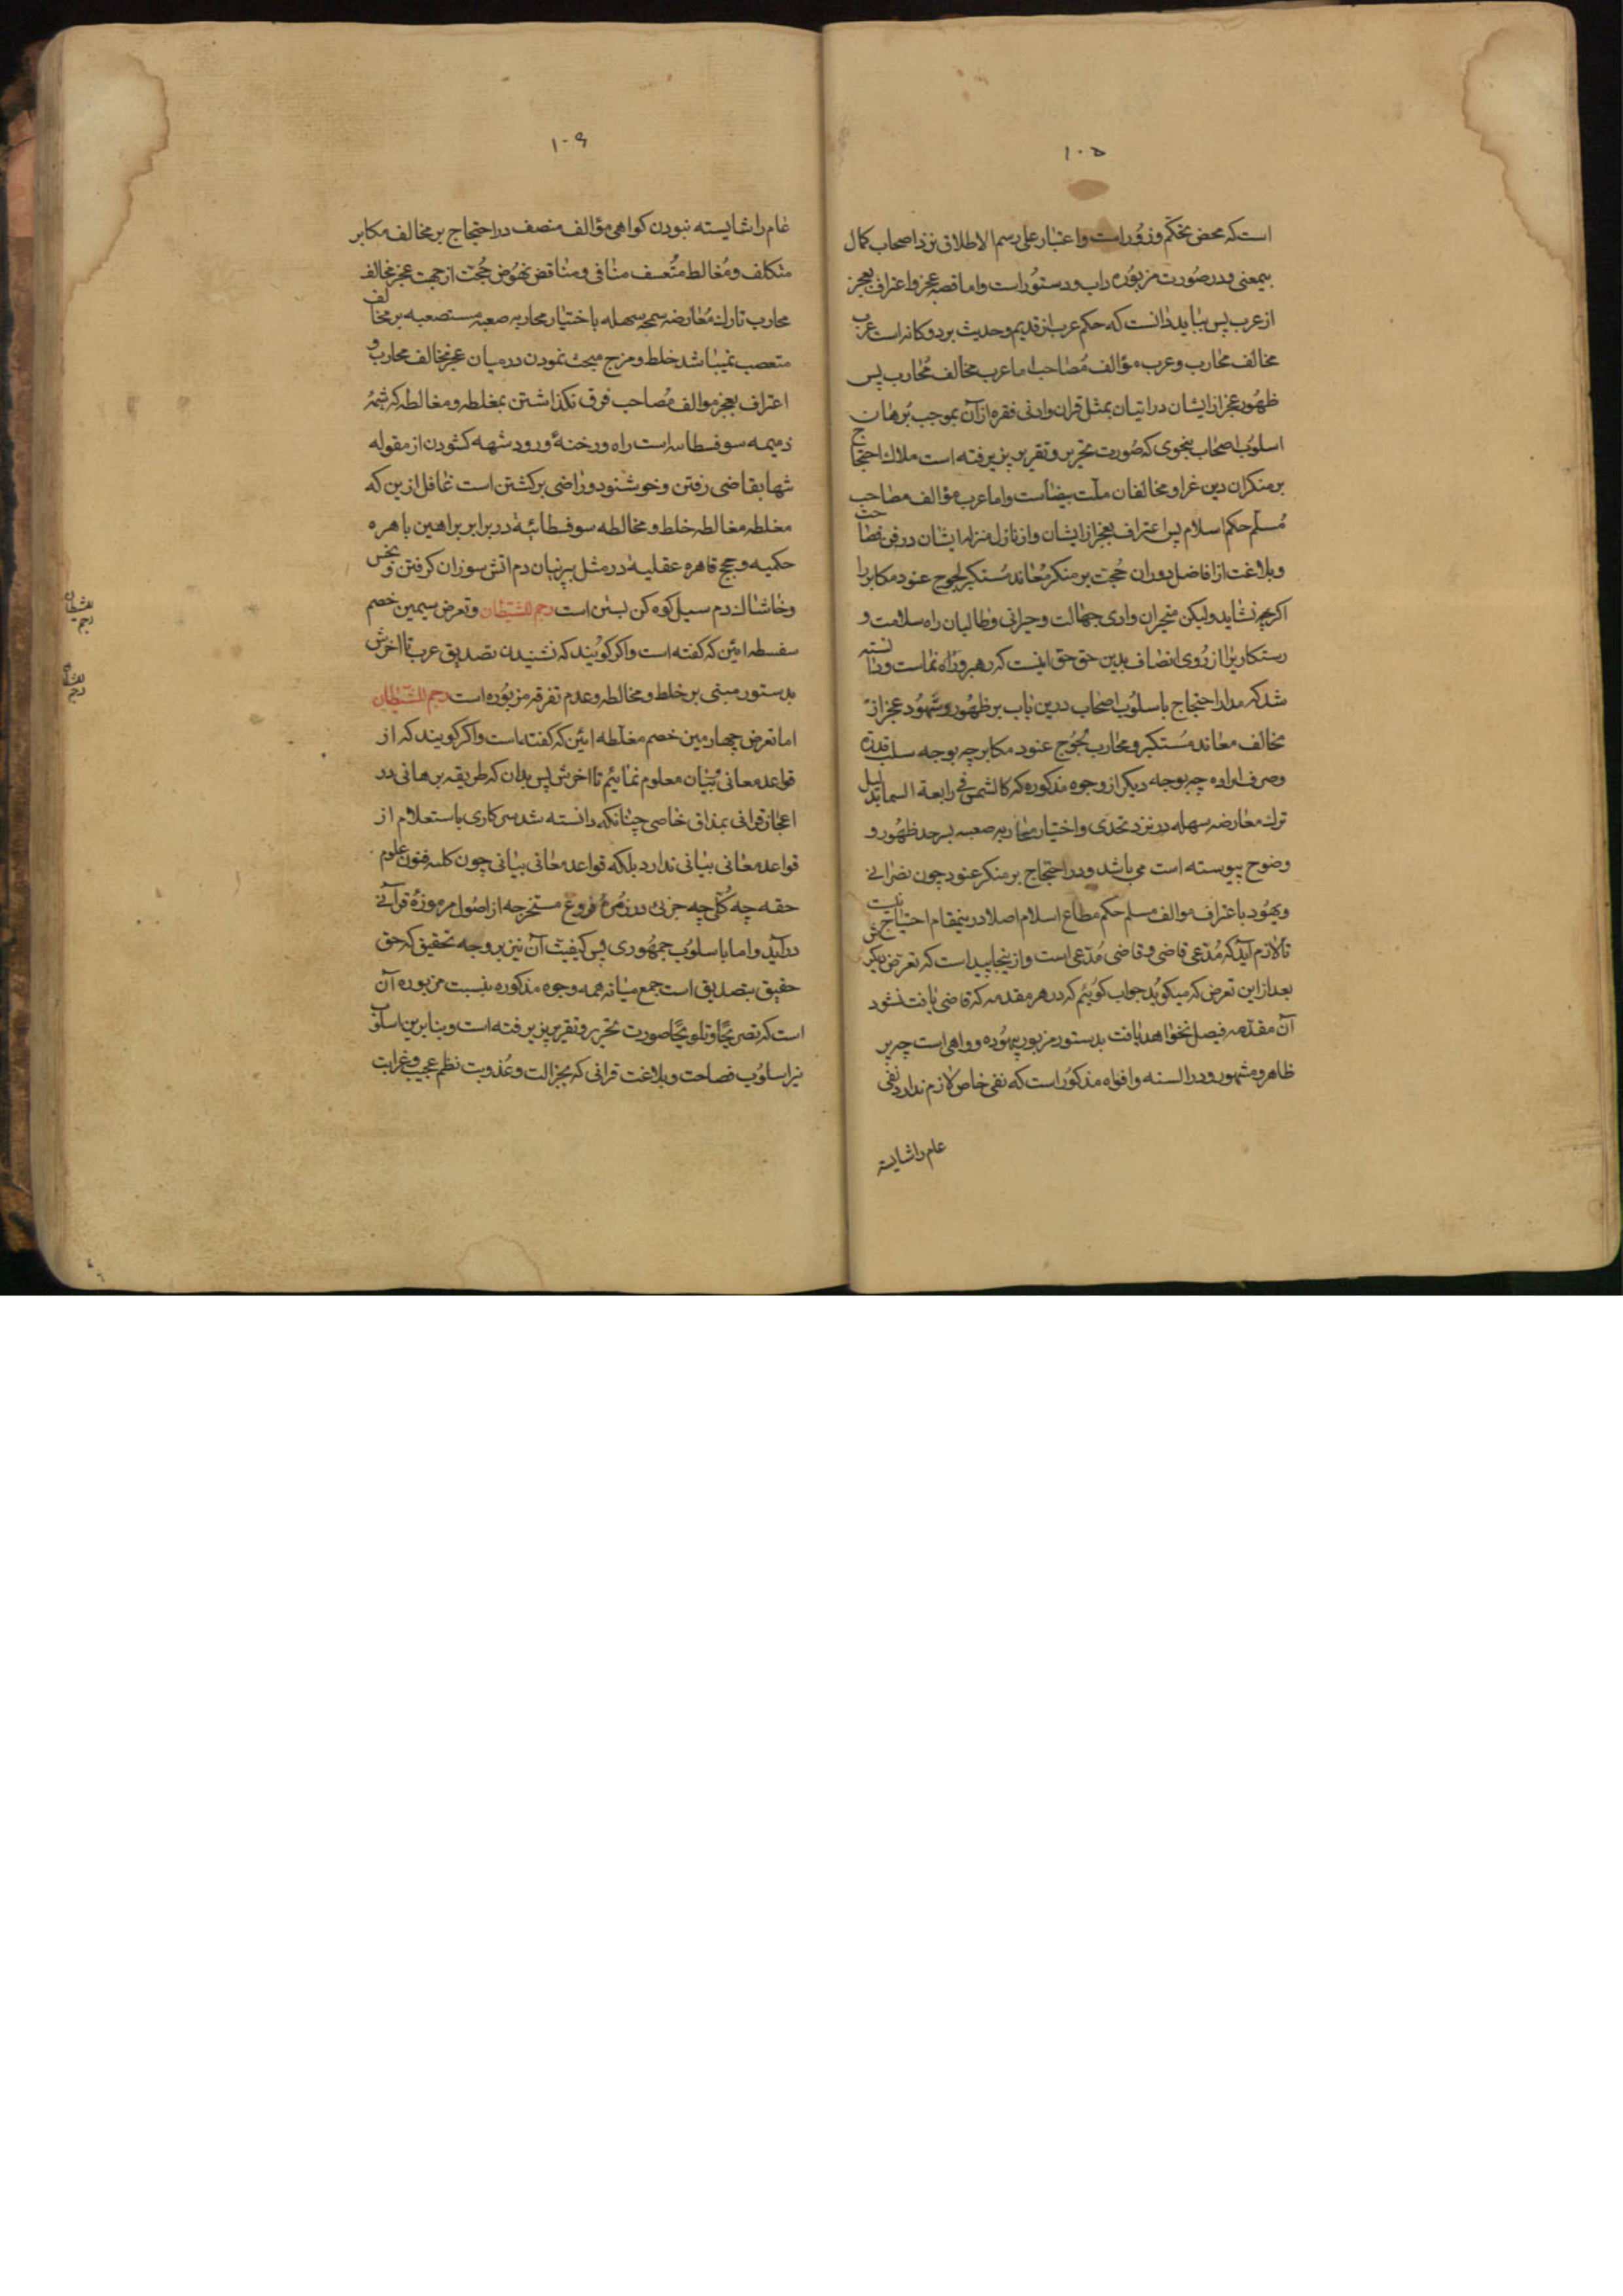 ١٠٥
است که محض تحکم وزور است واعتبار علی رسم الاطلاق نزد اصحاب کمال
بیمعنی ودر صورت مزبوره داب ودستور است واما قصه عجز واعتراف بعجز
از عرب پس بباید دانست که حکم عرب از قدیم وحدیث بر دو کانه است عرب
مخالف محارب وعرب مؤالف مصاحب اما عرب مخالف محارب پس
ظهور عجز از ایشان در اتیان بمثل قران وادنی فقره از آن بموجب برهان
اسلوب اصحاب بنحوی که صورت تحریر وتقریر پزیرفته است ملاک احتجاج
بر منکران دین غرا ومخالفان ملت بیضاست واما عرب مؤالف مصاحب
مسلم حکم اسلام پس اعتراف بعجز از ایشان واز نازل منزله ایشان در فن فصاحت
وبلاغت از افاضل دوران حجت بر منکر معاند مستکبر لجوج عنود مکابر را
اکرچه نشاید ولیکن متحیران وادی جهالت وحیرانی وطالبان راه سلامت و
رستکاریرا از روی انصاف بدین حق حق اینست که رهبر وراه نماست ودانسته
شد که مدار احتجاج باسلوب اصحاب درین باب بر ظهور وشهود عجز از
مخالف معاند مستکبر ومحارب لجوج عنود مکابر چه بوجه سلب قدرة
وصرف اراده چه بوجه دیکر از وجوه مذکوره که کالشمس فی رابعة السما بدلیل
ترک معارضه سهله در نزد تحدی واختیار محاربه صعبه بسرحد ظهور و
وضوح پیوسته است می باشد ودر احتجاج بر منکر عنود چون نصرانی
ویهود باعتراف موالف مسلم حکم مطاع اسلام اصلا درینمقام احتیاج نیست
تا لازم آید که مدعی قاضی وقاضی مدعی است واز ینجا پیداست که تعرض دیکرش
بعد از این تعرض که میکوید جواب کوئیم که در هر مقدمه که قاضی یافت نشود
آن مقدمه فیصل نخواهد یافت بدستور مزبور بیهوده وواهی است چه پر
ظاهر ومشهور ودر السنه وافواه مذکور است که نفی خاص لازم ندارد نفی
عام را شایسته
١٠٦
عام را شایسته نبودن کواهی مؤالف منصف در احتجاج بر مخالف مکابر
متکلف ومغالط متعسف منافی ومناقض نهوض حجت از جهت عجز مخالف
محارب تارک معارضه سمحه سهله باختیار محاربه صعبه مستصعبه بر مخالف
متعصب نمیباشد خلط ومزج مبحث نمودن درمیان عجز مخالف محارب و
اعتراف بعجز موالف مصاحب فرق نکذاشتن بمغلطه ومغالطه که شمه
ذمیمه سوفسطاسه است راه ورخنهٔ ورود شبهه کشودن از مقوله
تنها بقاضی رفتن وخوشنود وراضی برکشتن است غافل ازین که
مغلطه مغالطه خلط ومخالطه سوفسطائیه در برابر براهین باهره
حکمیه وحجج قاهره عقلیه در مثل پرنیان دم اتش سوزان کرفتن وبخس
وخاشاک دم سیل کوه کن بستن است رجم للشیطان وتعرض سیمین خصم
سفسطه ائین که کفته است واکر کویند که نشنیدن تصدیق عرب تا اخرش
بدستور مبنی بر خلط ومخالطه وعدم تفرقه مزبوره است رجم للشیطان
اما تعرض چهارمین خصم مغلطه ائین که کفته است واکر کویند که از
قواعد معانی بنیان معلوم نمائیم تا اخرش پس بدان که طریقه برهانی در
اعجاز قرانی بمذاق خاصی چنانکه دانسته شد سرکاری باستعلام از
قواعد معانی بیانی ندارد بلکه قواعد معانی بیانی چون کلیه فنون علوم
حقه چه کل چه جزئی در زمره فروع مستخرجه از اصول مرموزهٔ قرآنی
درآید واما باسلوب جمهوری پس کیفیت آن نیز بر وجه تحقیق که حق
حقیق بتصدیق است جمع میانه همه وجوه مذکوره بنسبت مزبوره آن
است که تصریحًا وتلویحًا صورت تحریر وتقریر پزیرفته است وبنا برین اسلوب
نیز اسلوب فصاحت وبلاغت قرانی که بجزالت وعذوبت نظم عجیب وغرابت
للشیطان
رجم
للشیطان
رجم